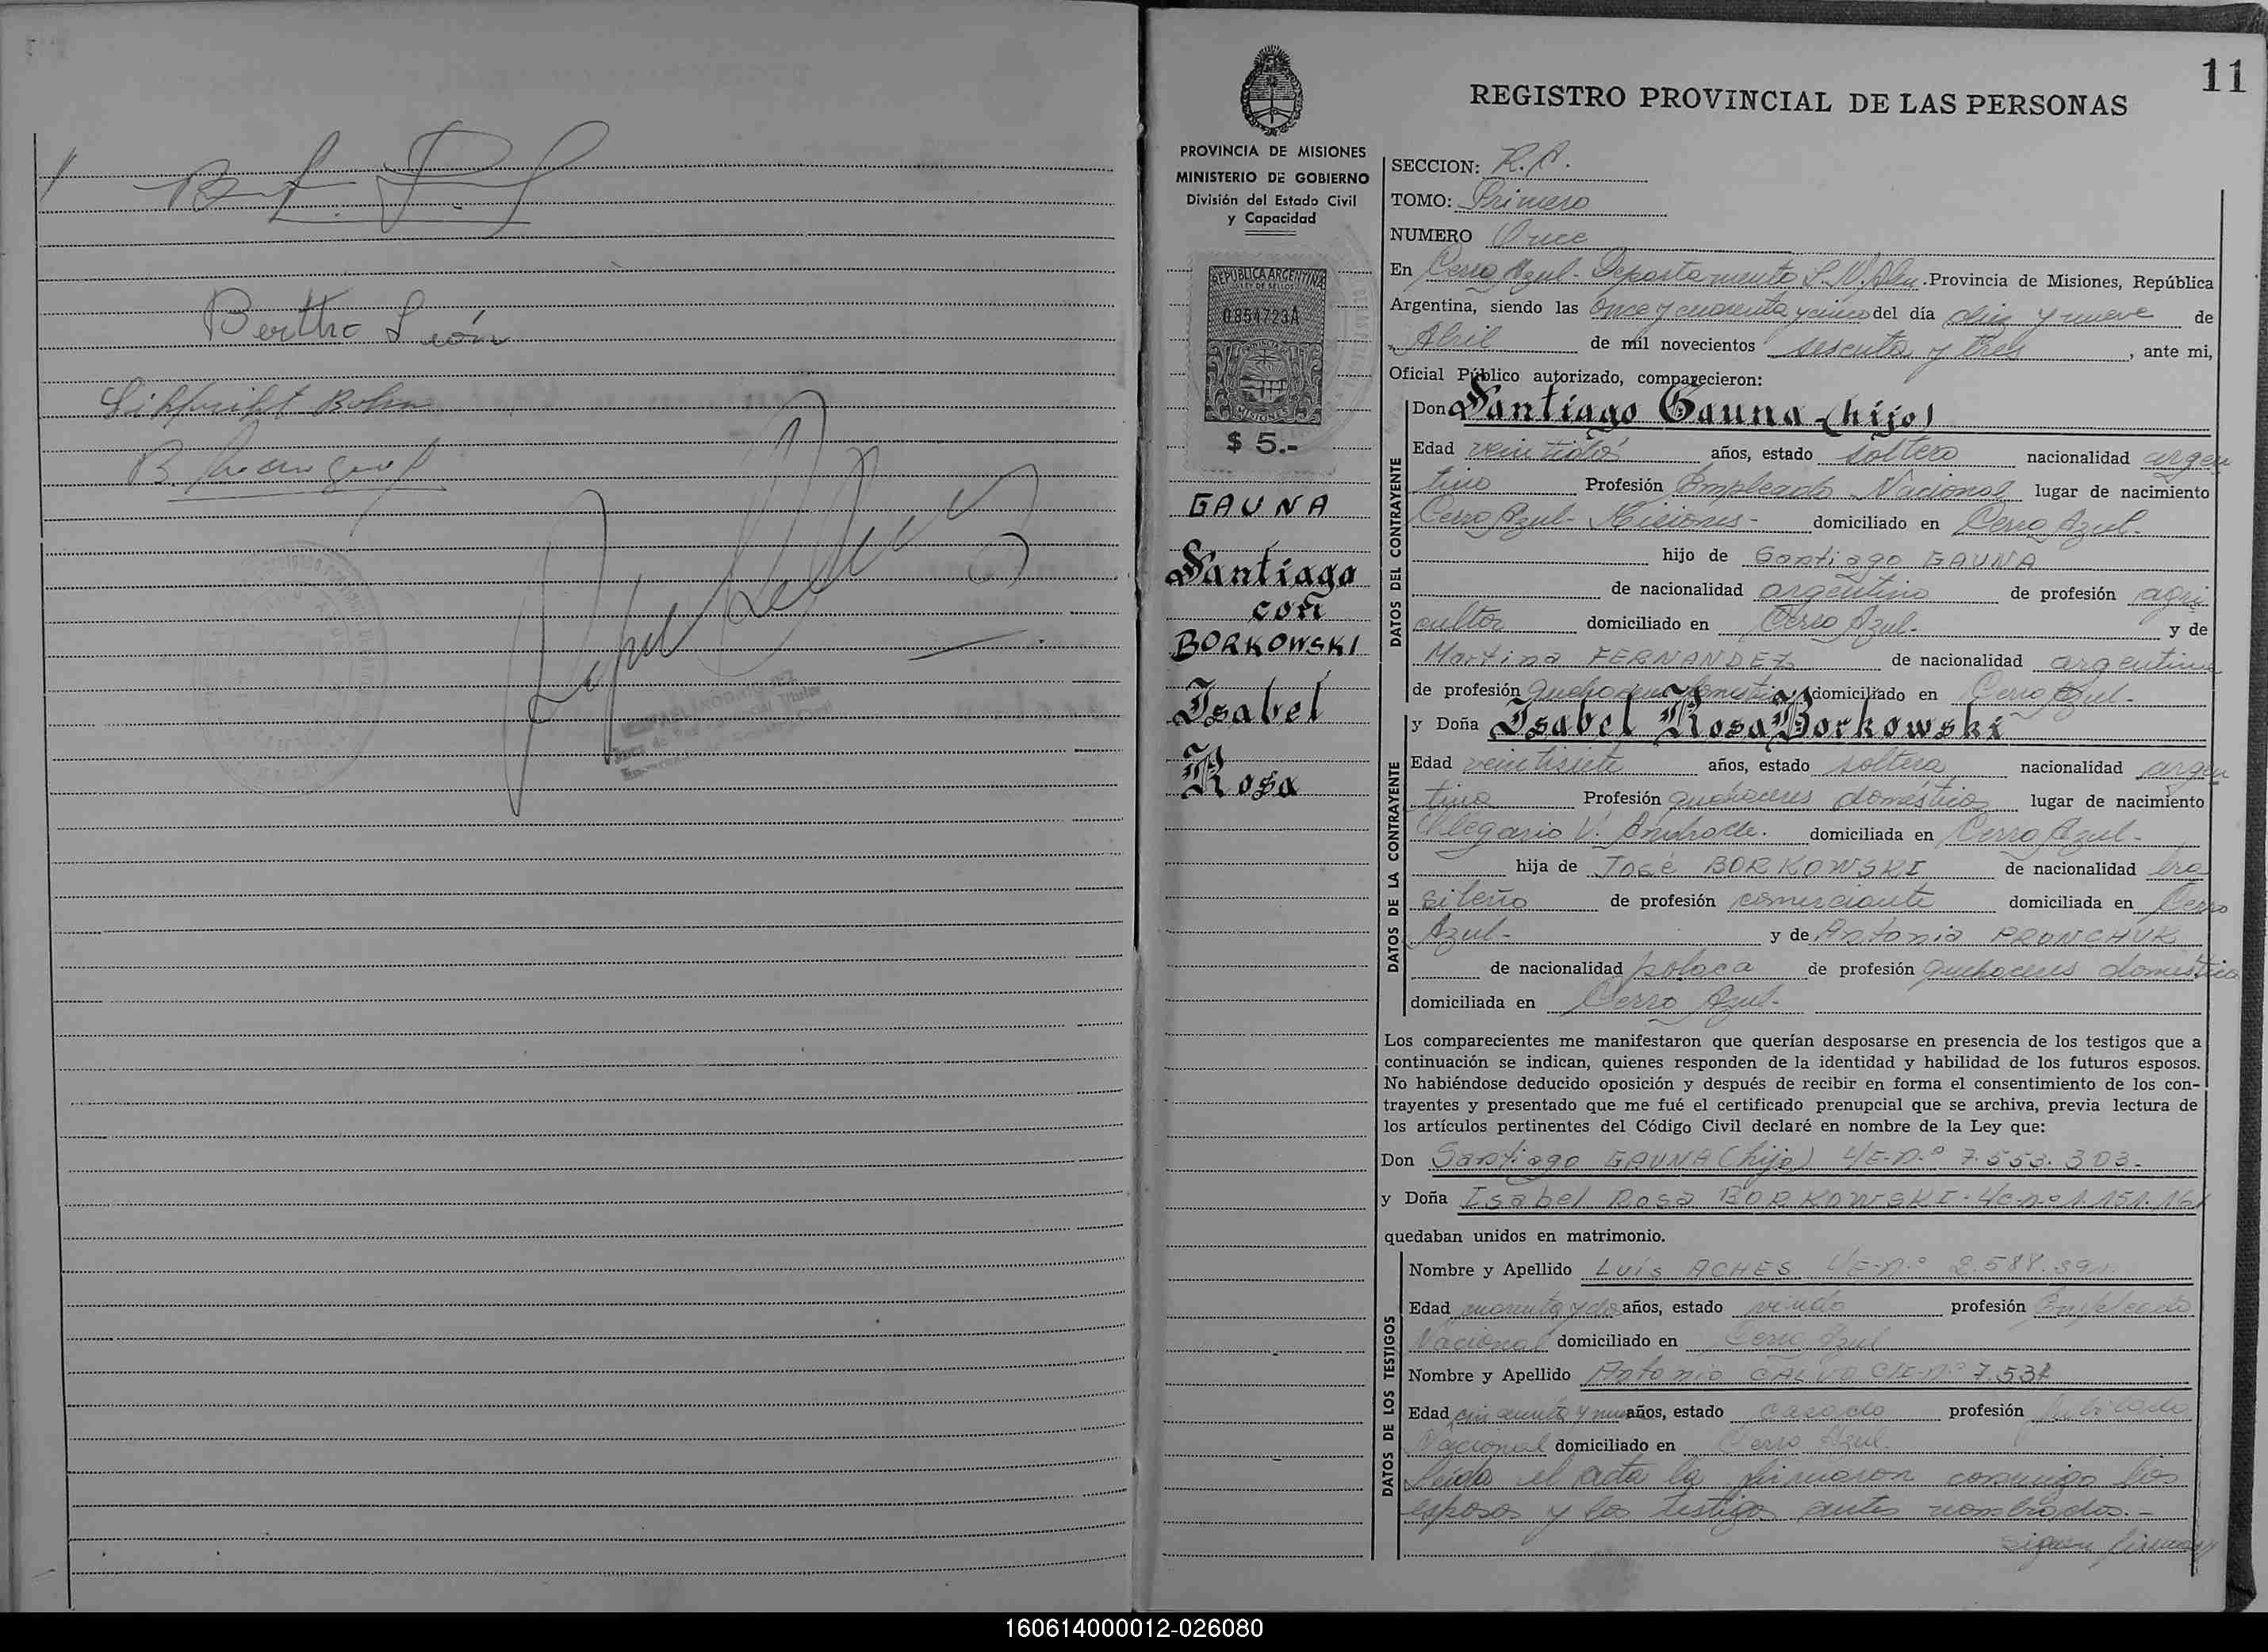 Bertha León
11
REGISTRO PROVINCIAL DE LAS PERSONAS
PROVINCIA DE MISIONES
MINISTERIO DE GOBIERNO
División del Estado Civil
y Capacidad
REPUBLICA ARGENTINA
LEY DE SELLOS
0854723A
PROVINCIA DE
MISIONES
$ 5.-
GAUNA
Santiago
con
BORKOWSKI
Isabel
Rosa
SECCION: R.C.
TOMO: Primero
NUMERO Once
En Cerro Azul - Departamento L. N. Alem. Provincia de Misiones, República
Argentina, siendo las once y cuarenta y cinco del día diez y nueve de
Abril de mil novecientos sesenta y tres, ante mi,
Oficial Público autorizado, comparecieron:
DATOS DEL CONTRAYENTE
Don Santiago Gauna (hijo)
Edad veintidós años, estado soltero nacionalidad argen
tino Profesión Empleado Nacional lugar de nacimiento
Cerro Azul - Misiones - domiciliado en Cerro Azul -
hijo de Santiago GAUNA
de nacionalidad argentino de profesión agri
cultor domiciliado en Cerro Azul - y de
Martina FERNANDEZ de nacionalidad argentina
de profesión quehaceres domésticos domiciliado en Cerro Azul -
DATOS DE LA CONTRAYENTE
y Doña Isabel Rosa Borkowski
Edad veintisiete años, estado soltera nacionalidad argen
tina Profesión quehaceres domésticos lugar de nacimiento
Olegario V. Andrade. domiciliada en Cerro Azul -
hija de José BORKOWSKI de nacionalidad bra
sileño de profesión comerciante domiciliada en Cerro
Azul - y de Antonia PRONCHUK
de nacionalidad polaca de profesión quehaceres domésticos
domiciliada en Cerro Azul -
Los comparecientes me manifestaron que querían desposarse en presencia de los testigos que a
continuación se indican, quienes responden de la identidad y habilidad de los futuros esposos.
No habiéndose deducido oposición y después de recibir en forma el consentimiento de los con-
trayentes y presentado que me fué el certificado prenupcial que se archiva, previa lectura de
los artículos pertinentes del Código Civil declaré en nombre de la Ley que:
Don Santiago GAUNA (hijo) L/E-n.º 7.553.303.-
y Doña Isabel Rosa BORKOWSKI - L/C-n.º 1.151.161
quedaban unidos en matrimonio.
DATOS DE LOS TESTIGOS
Nombre y Apellido Luís ACHES L/E-n.º
Edad cuarenta y dos años, estado viudo profesión Empleado
Nacional domiciliado en Cerro Azul
Nombre y Apellido Antonio CALVO C/I-nº 7.534
Edad cincuenta y nueve años, estado casado profesión Jubilado
Nacional domiciliado en Cerro Azul
Leida el acta la firmaron conmigo los
esposos y los testigos antes nombrados.-
Siguen firmas
160614000012-026080